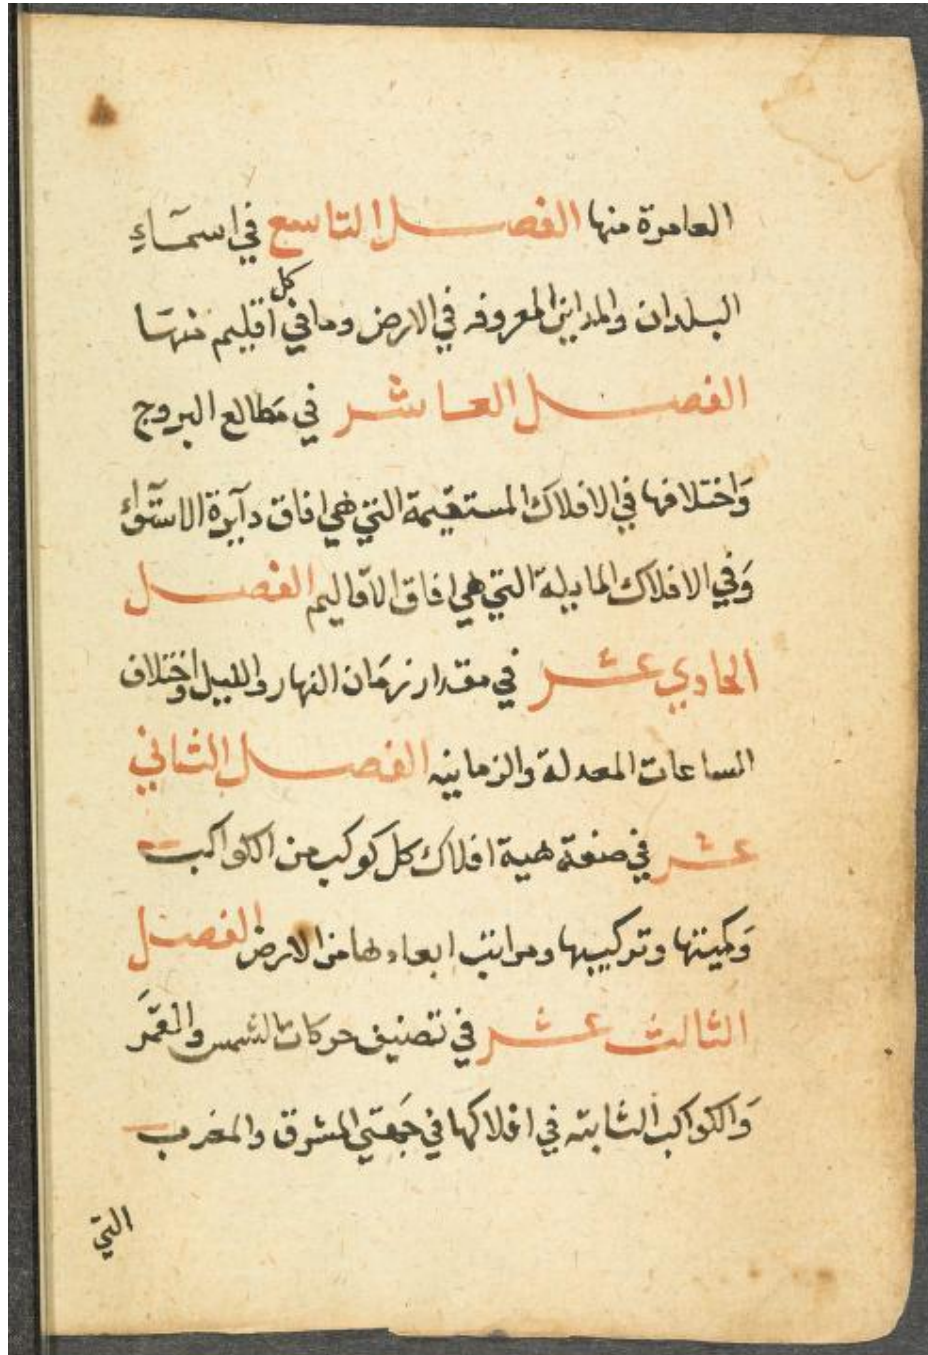 العامرة منها الفصل التاسع في اسمآءِ
البلدان والمداين المعروفه في الارض وما في كل اقليم منها
الفصل العاشر في مَطالع البروج
وَاختلافها في الافلاك المستقيمة التي هي افاق دآيرة الاستوآء
وَفي الافلاك المايلة التي هي افاق الاقاليم الفصل
الحادي عشر في مقدار زمَان النهار والليل واختلاف
الساعات المعدلة والزمانيه الفصل الثاني
عشر في صفة هية افلاك كل كوكب من الكواكب
وَكميتها وتركيبها ومراتب ابعادها من الارض الفصل
الثالث عشر في تصنيف حركات الشمس والقمَر
وَالكواكب الثابته في افلاكها في جَهتي المشرق والمغرب
التي